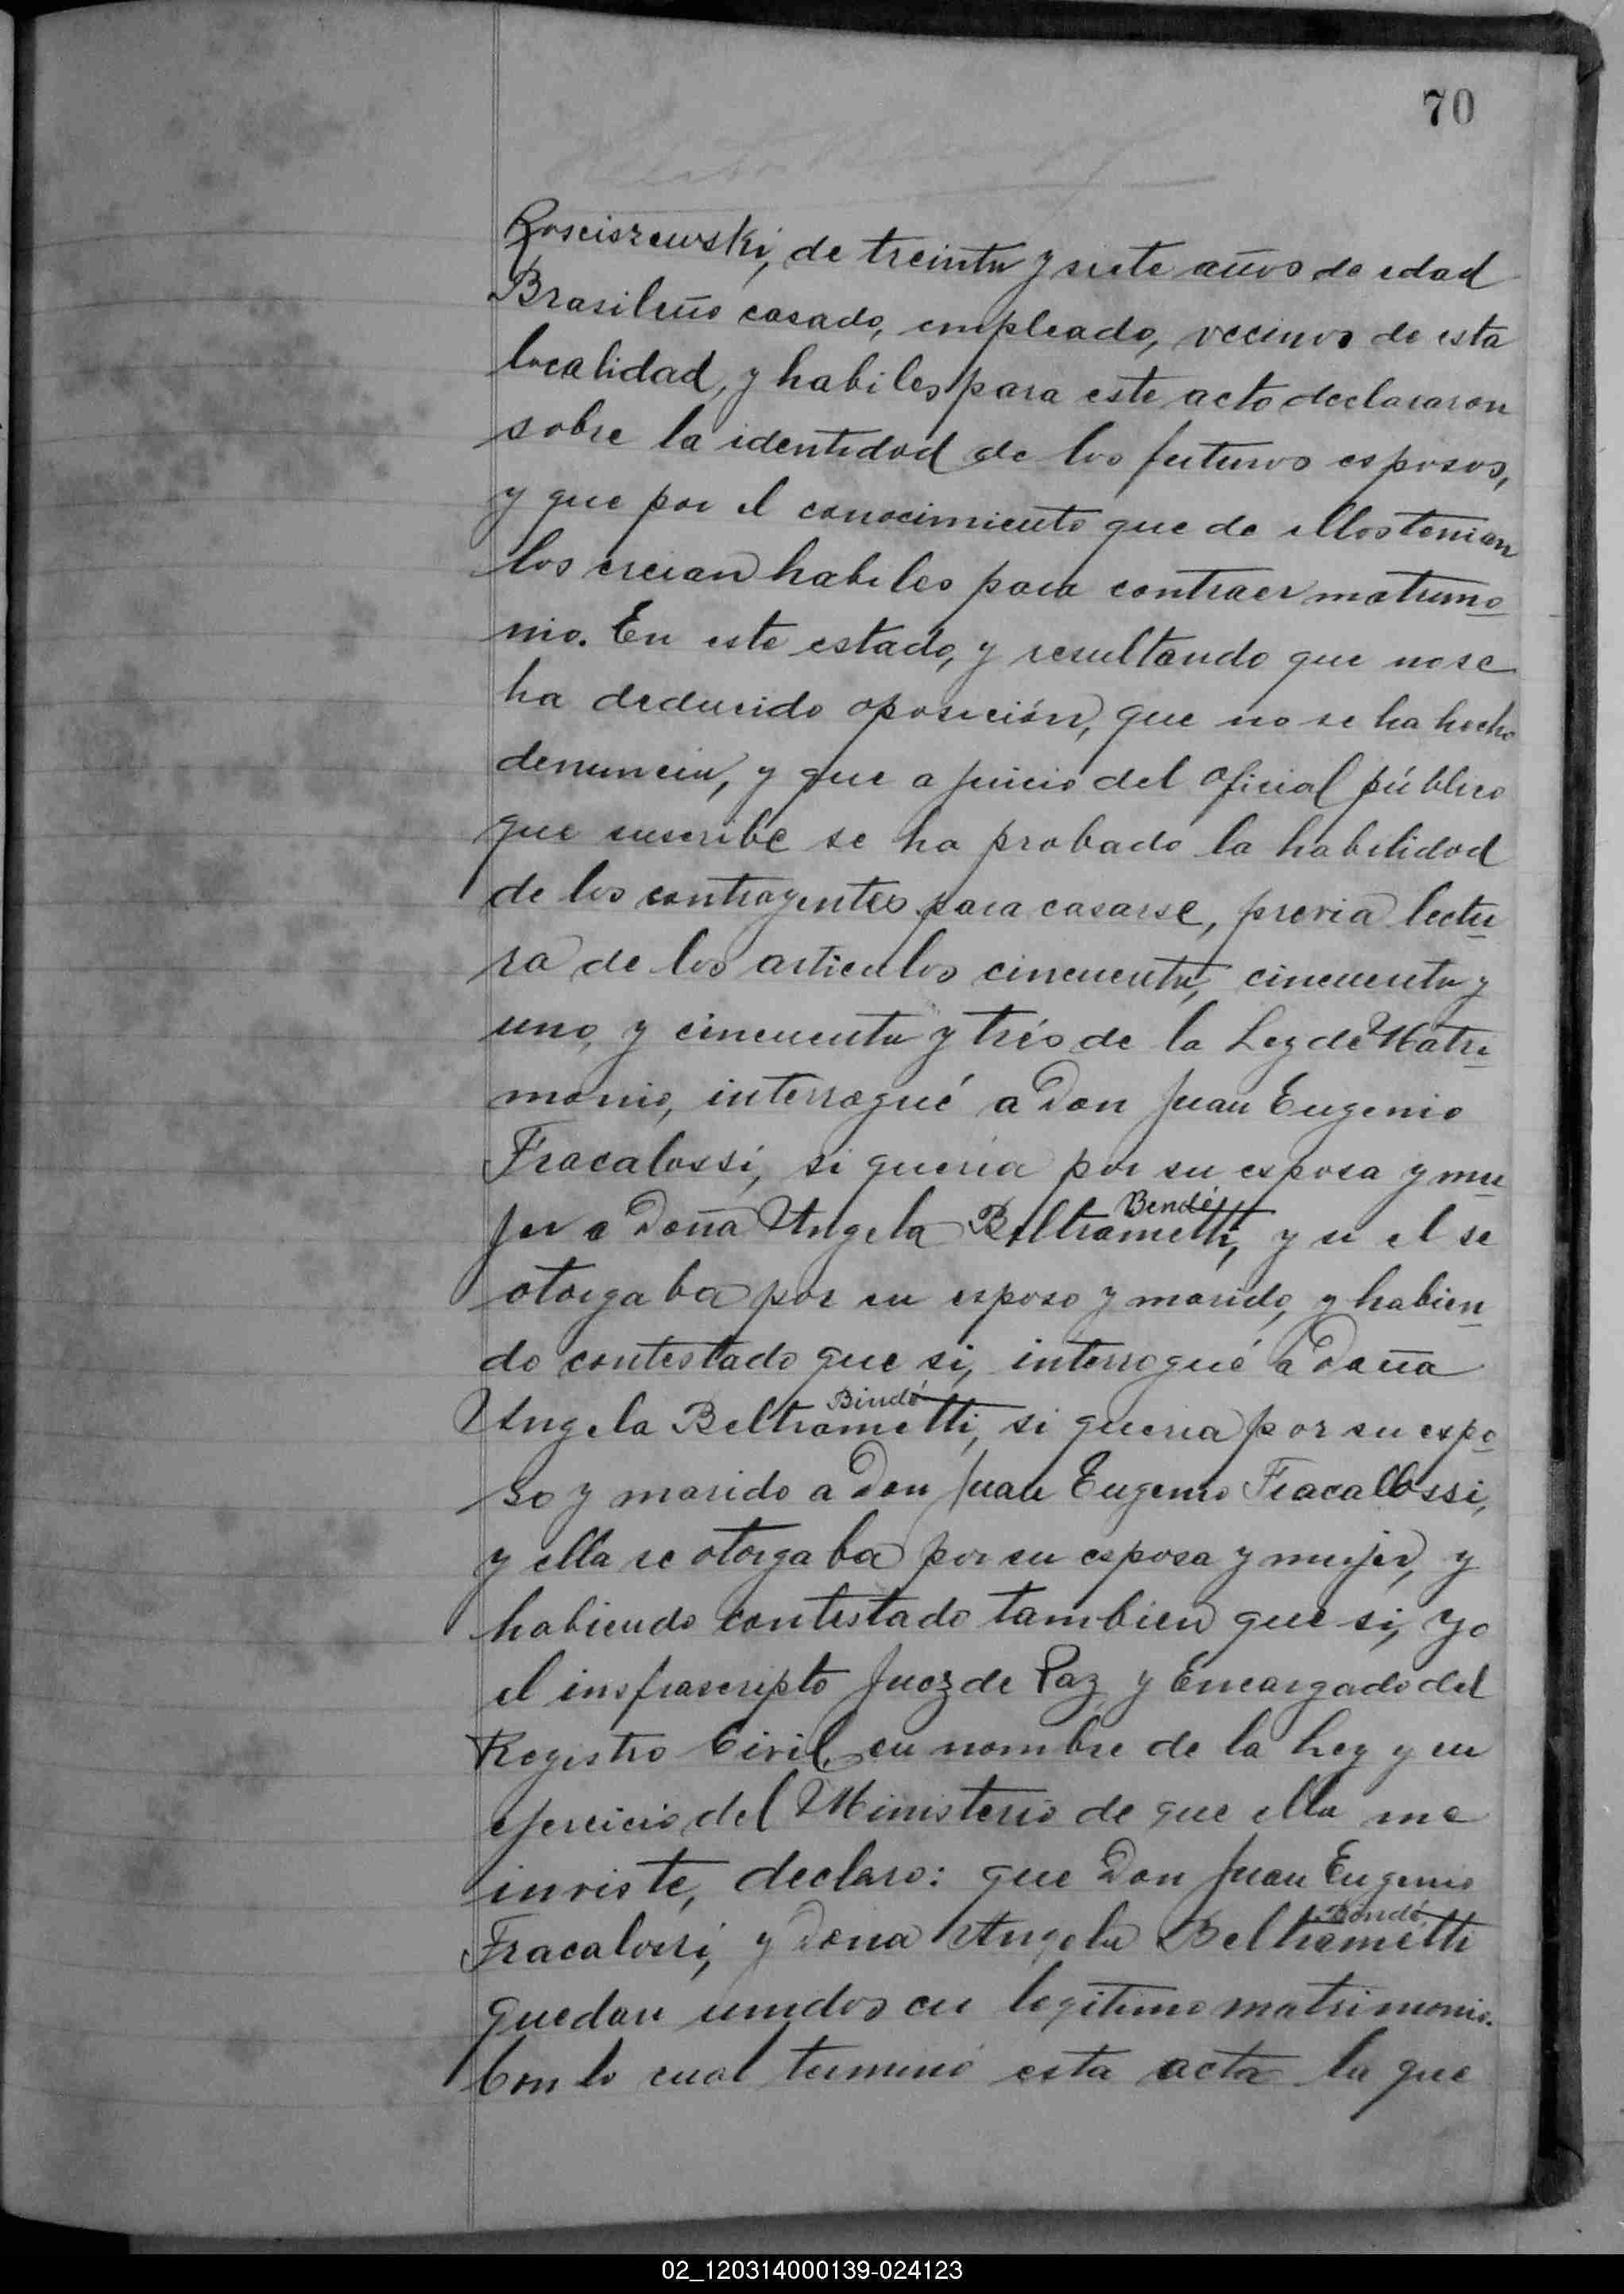 70
Rosciszewski, de treinta y siete años de edad
Brasileño casado, empleado, vecinos de esta
localidad, y habiles para este acto declararon
sobre la identidad de los futuros esposos,
y que por el conocimiento que de ellos tenian
los creian habiles para contraer matrimo
nio. En este estado, y resultando que no se
ha deducido oposición, que no se ha hecho
denuncia, y que a juicio del oficial público
que suscribe se ha probado la habilidad
de los contrayentes para casarse, previa lectu
ra de los articulos cincuenta, cincuenta y
uno, y cincuenta y trés de la Ley de Matri
monio, interrogué a Don Juan Eugenio
Fracalossi, si queria por su esposa y mu
Bendé
jer a Doña Angela Beltrametti, y si el se
otorgaba por su esposo y marido, y habien
do contestado que si, interrogué a Doña
Bindó
Angela Beltrametti, si queria por su espo
so y marido a Don Juan Eugenio Fracalossi,
y ella se otorgaba por su esposa y mujer, y
habiendo contestado tambien que si, yo
el insfrascripto Juez de Paz y Encargado del
Registro Civil, en nombre de la Ley y en
ejercicio del Ministerio de que ella me
inviste, declaro: que Don Juan Eugenio
Bondé
Fracalossi, y Dona Angela Beltrametti
quedan unidos en legitimo matrimonio.
Con lo cual terminó esta acta la que
02_120314000139-024123